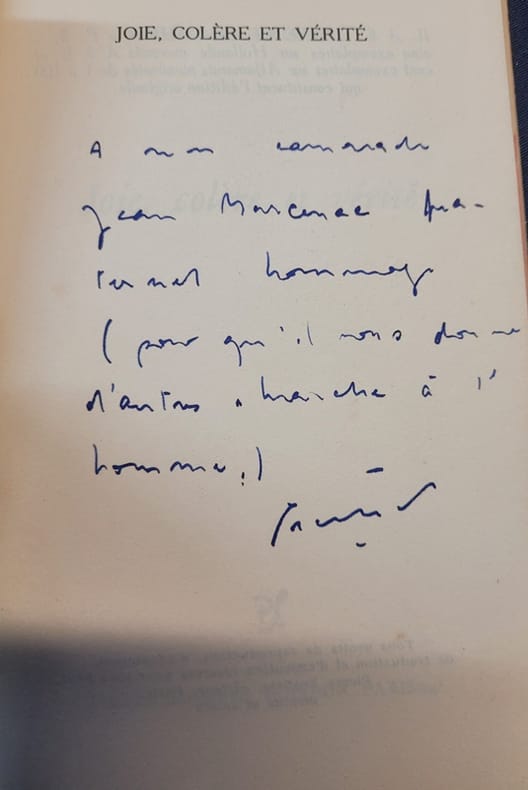 JOIE, COLÈRE ET VÉRITÉ
A mon camarade
Jean Marcenac fra-
ternel hommage
( pour qu'il nous donne
d'autres " marche à l'
homme ! )